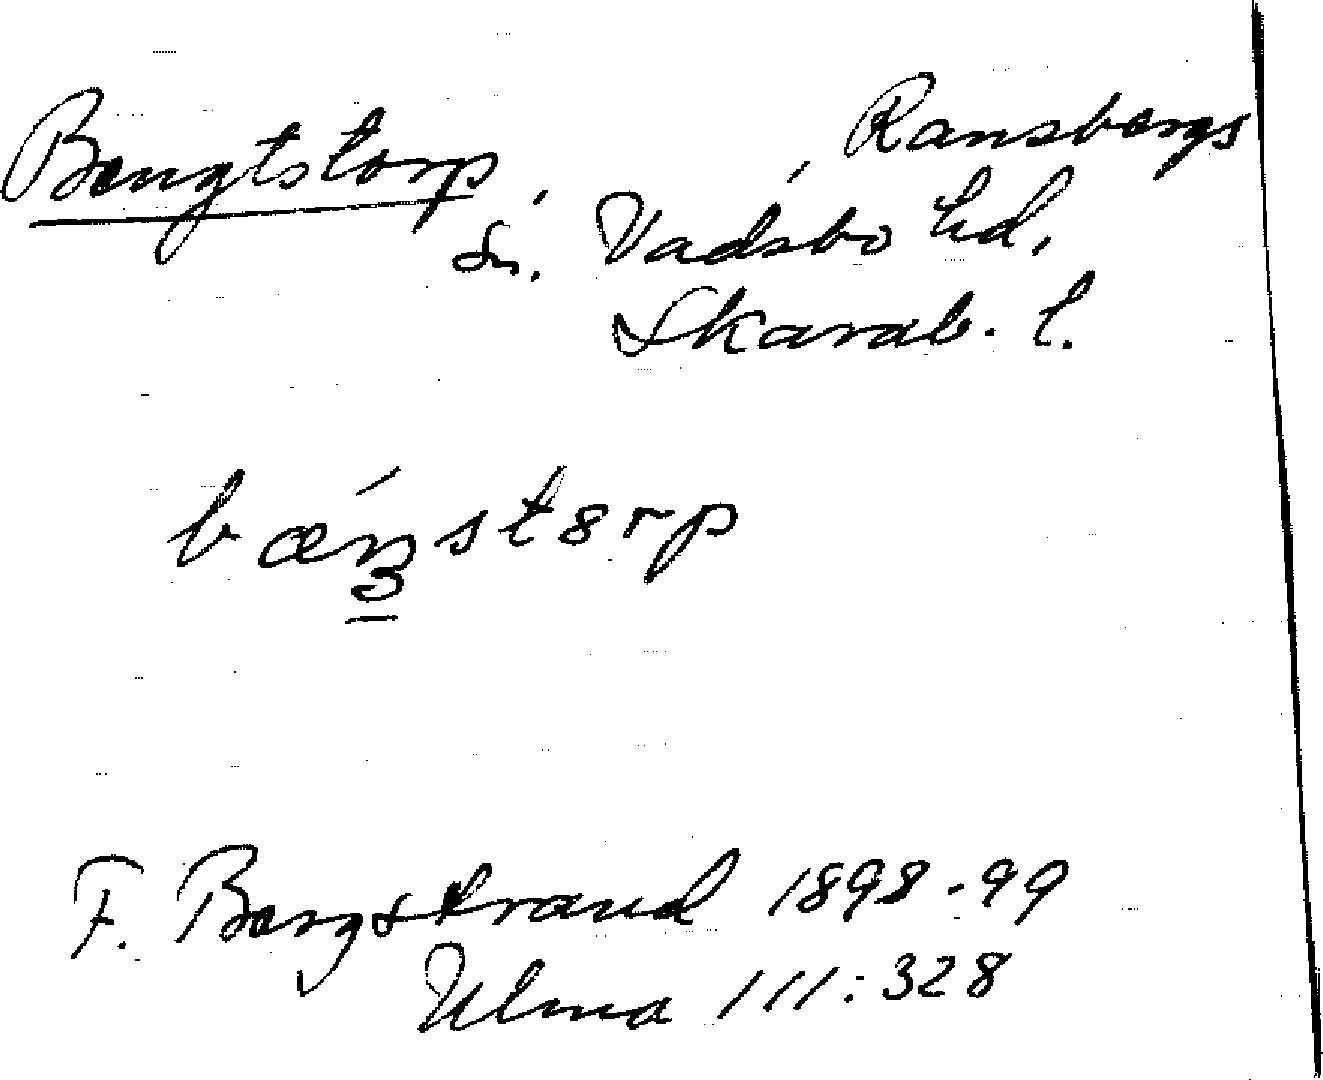 Bengtstorp, Ransbergs
sn. Vadsbo hd.
Skarab. l.
F. Bergstrand 1898-99
Ulma 111:328